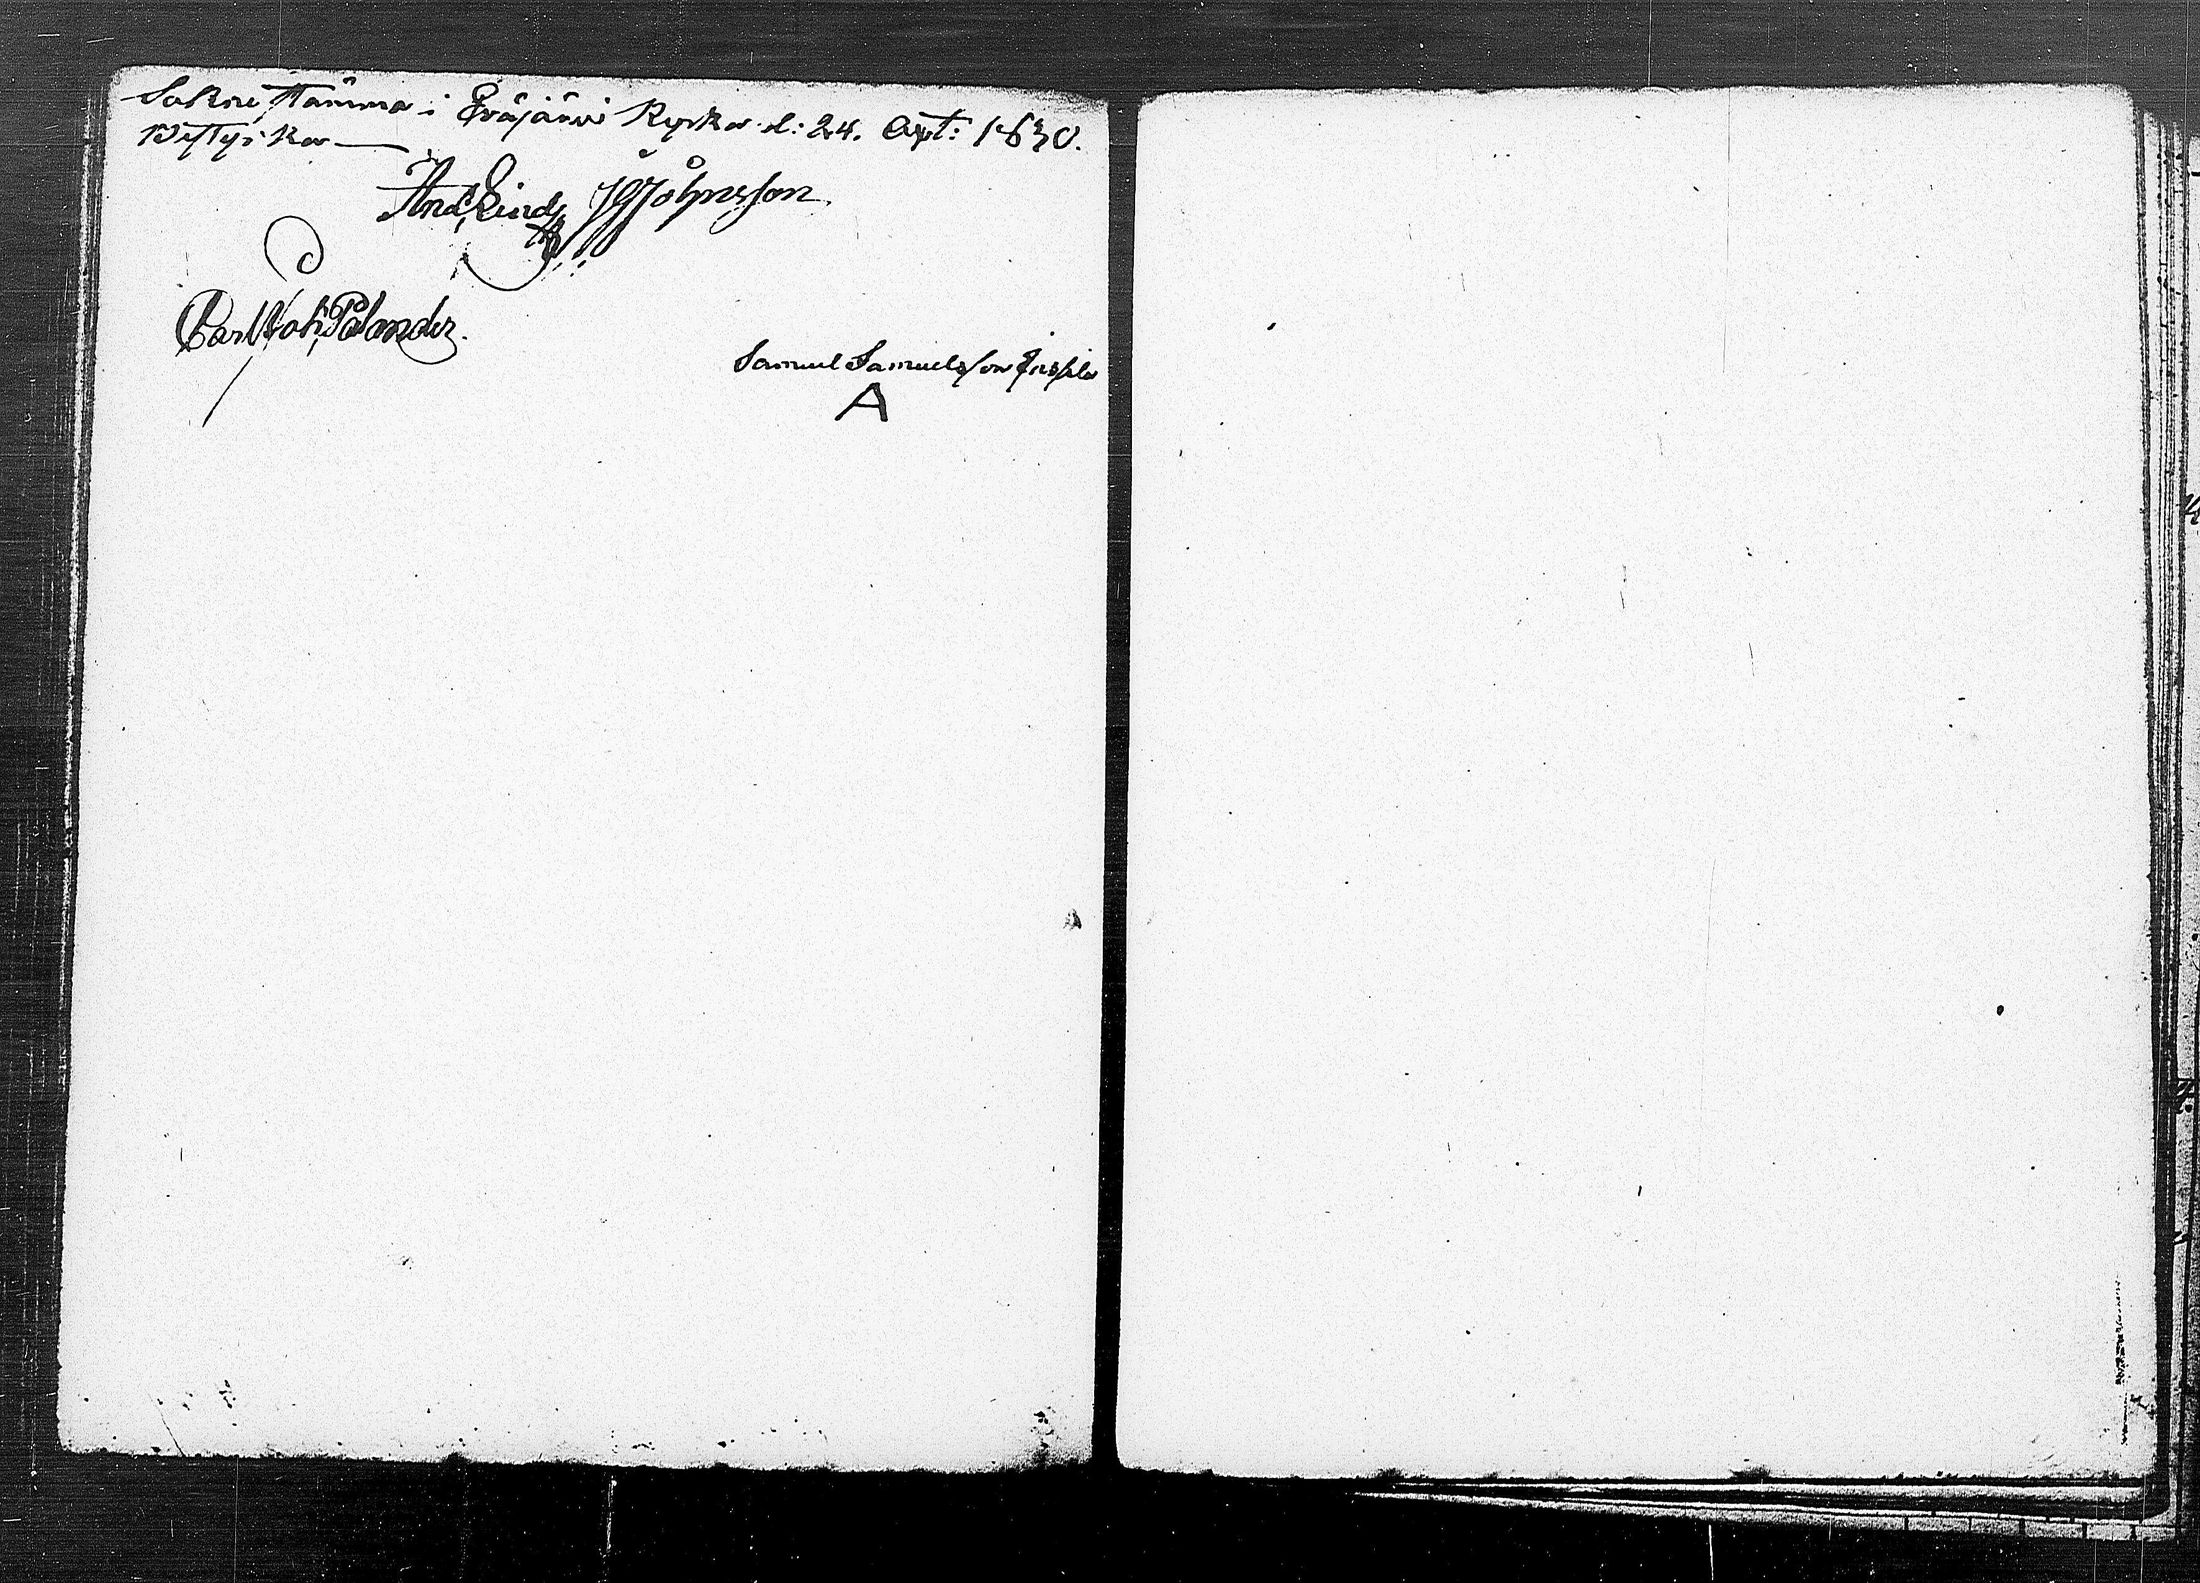 Sokne stämma i Eräjärvi Kyrka d: 24. Oct: 1830.
Bestyrka —
And. Lind JG Johnsson
Carl Joh. Palander.
Samuel Samuelsson
A